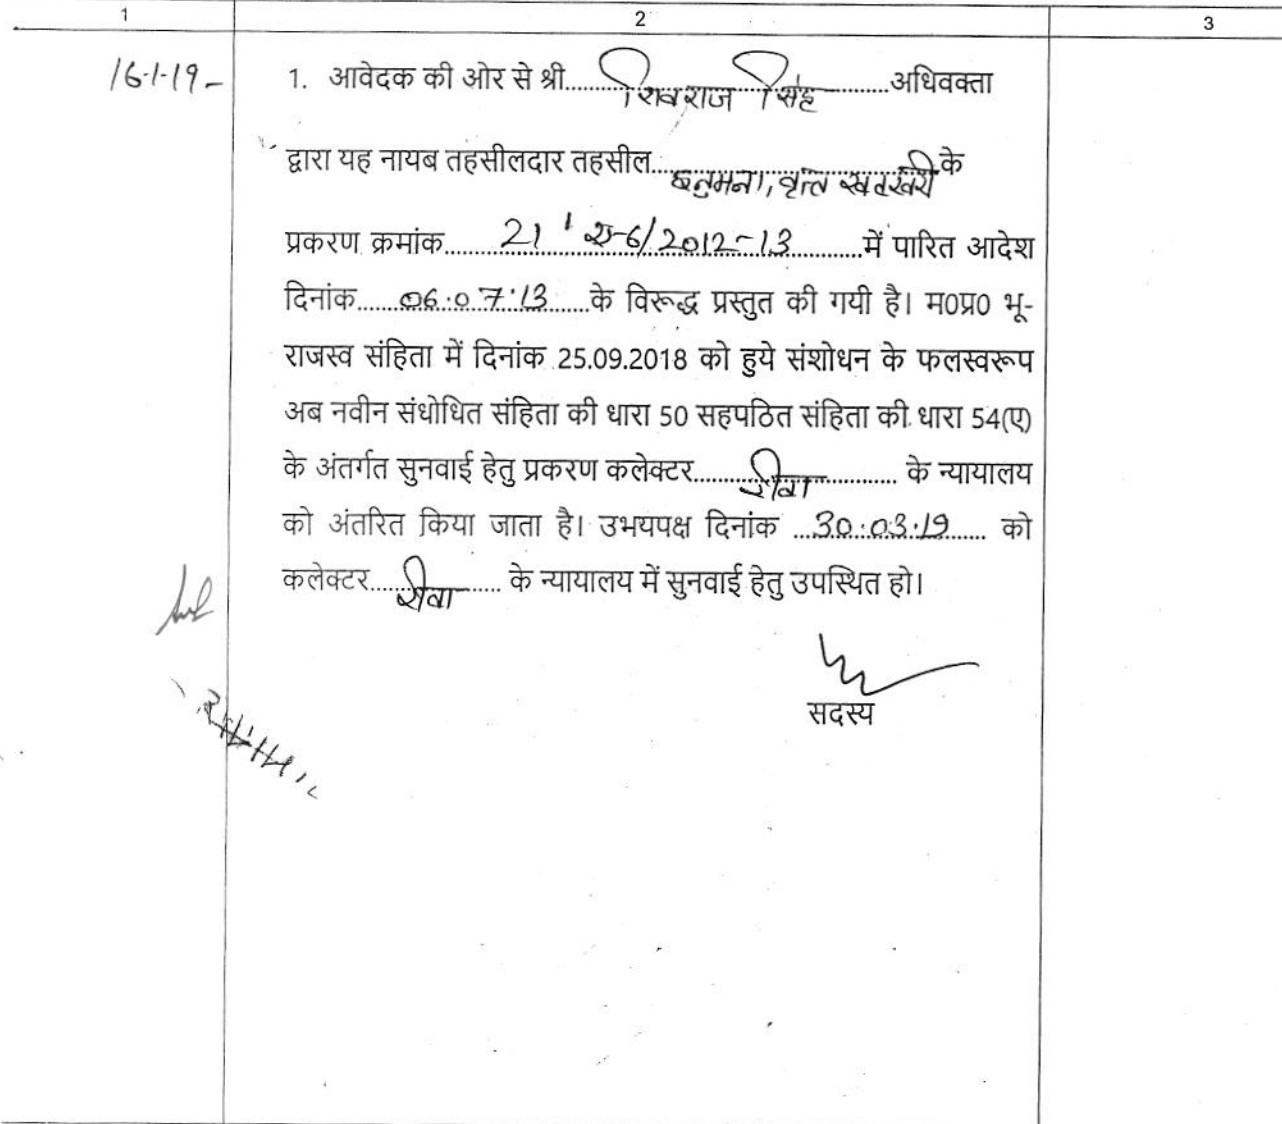 1 2 3
16-1-19-
1. आवेदक की ओर से श्री....शिवराज सिंह....अधिवक्ता
द्वारा यह नायब तहसीलदार तहसील....हनुमना, वृत्त खटखरी के
प्रकरण क्रमांक....21 अ-6/2012-13....में पारित आदेश
दिनांक....06.07.13....के विरूद्ध प्रस्तुत की गयी है। म0प्र0 भू-
राजस्व संहिता में दिनांक 25.09.2018 को हुये संशोधन के फलस्वरूप
अब नवीन संधोधित संहिता की धारा 50 सहपठित संहिता की धारा 54(ए)
के अंतर्गत सुनवाई हेतु प्रकरण कलेक्टर....रीवा.... के न्यायालय
को अंतरित किया जाता है। उभयपक्ष दिनांक ....30.03.19.... को
कलेक्टर....रीवा.... के न्यायालय में सुनवाई हेतु उपस्थित हो।
सदस्य